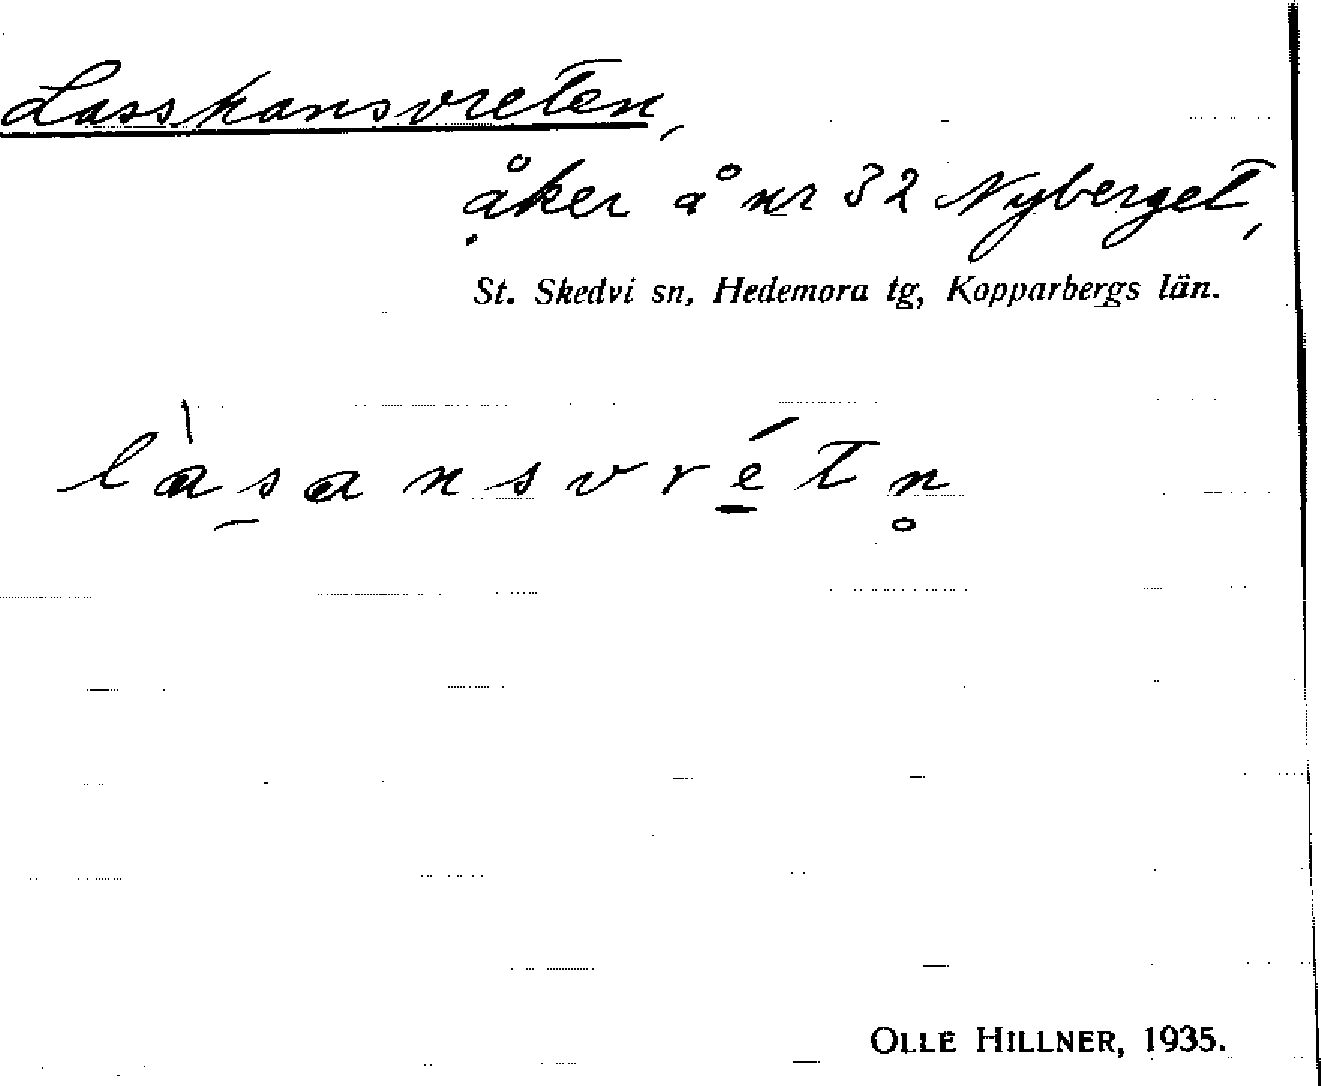 Lasshansvreten,
åker å nr 32 Nyberget,
St. Skedvi sn, Hedemora tg, Kopparbergs län.
là̱sansvré̱tn̥
OLLE HILLNER, 1935.